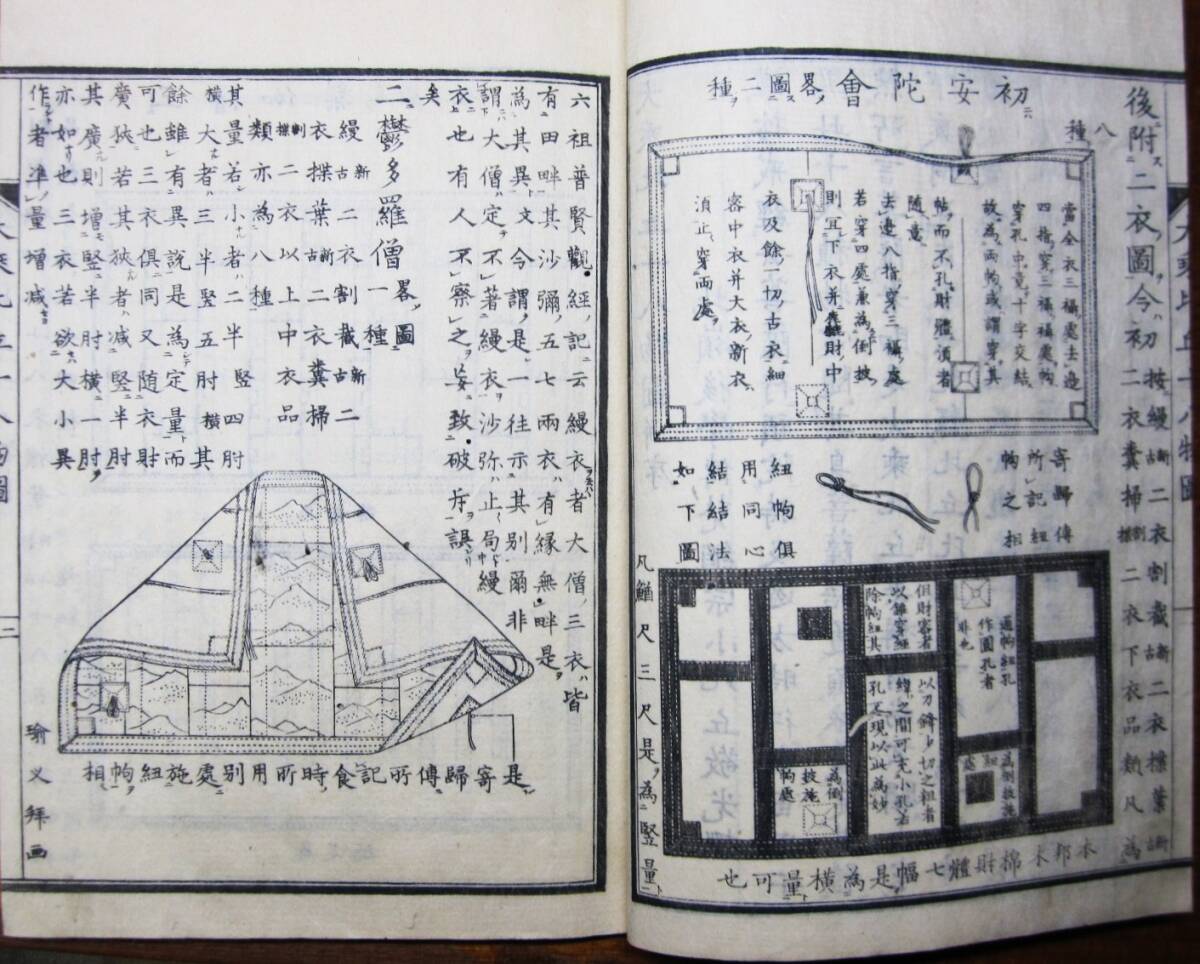 後附二衣圖今初
按縵古新二衣割截古新二衣褋葉古新
二衣糞掃割褋二衣下衣品類凡為
八種
初安陀會畧圖二種
當全衣三褔處去邊
四指穿三褔褔處鉤
穿孔中竟十字交結
故為兩鉤或謂穿其
帖而不孔財體須者
隨意
去邊八指穿三褔處
若穿四處兼為倒披
則冝下衣并麁財中
衣及餘一切古衣細
密中衣并大衣新衣
湏止穿兩處
寄歸傳
所記紐
鉤之相
紐鉤俱
用同心
結結法
如下圖
通鉤紐孔
作圓孔者
非也
為倒披施
紐處
但財密者
以錐穿經
除鉤紐其
以刀鋒少切之粗者
緯之間可充小孔法
孔不現以此為妙
為倒
披施
鉤處
本邦木棉財體七幅是為橫量可也
凡鯨尺三尺是為竪量
六祖普賢觀經記云縵衣者大僧三衣皆
有田畔其沙彌五七兩衣有縁無畔是
為其異文今謂是一往示其別爾非
謂大僧定不著縵衣沙弥止局縵
衣也有人不察之妄致破斥誤
矣
二鬱多羅僧一種畧圖
縵古新二衣割截古新二
衣褋葉古新二衣糞掃
割褋二衣以上中衣品
類亦為八種
其量若小者二半竪四肘
橫大者三半竪五肘橫其
餘雖有異說是為定量而
可也三衣俱同又随衣財
廣狹若其狹者減竪半肘
其廣則增竪半肘橫一肘
亦如也三衣若欲大小異
作者準量增減
是寄歸傳所記食時所用別處施紐鉤相
瑜义拜画